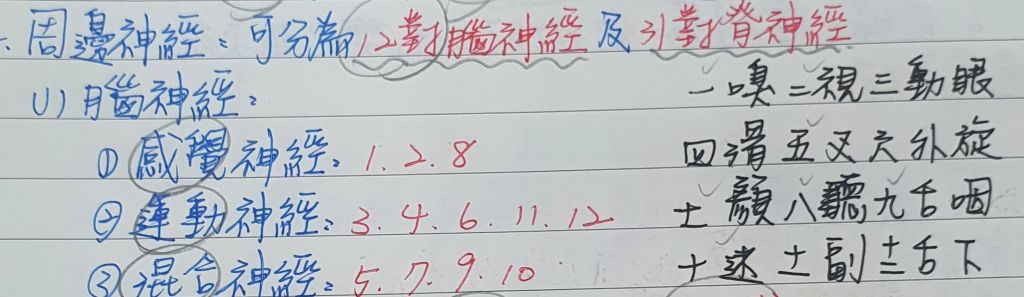 周邊神經:可分為12對腦神經及31對脊神經
(1)腦神經:
一嗅二視三動眼
①感覺神經:1.2.8
四滑五叉六外旋
②運動神經:3.4.6.11.12
七顏八聽九舌咽
③混合神經:5.7.9.10
十迷十一副十二舌下